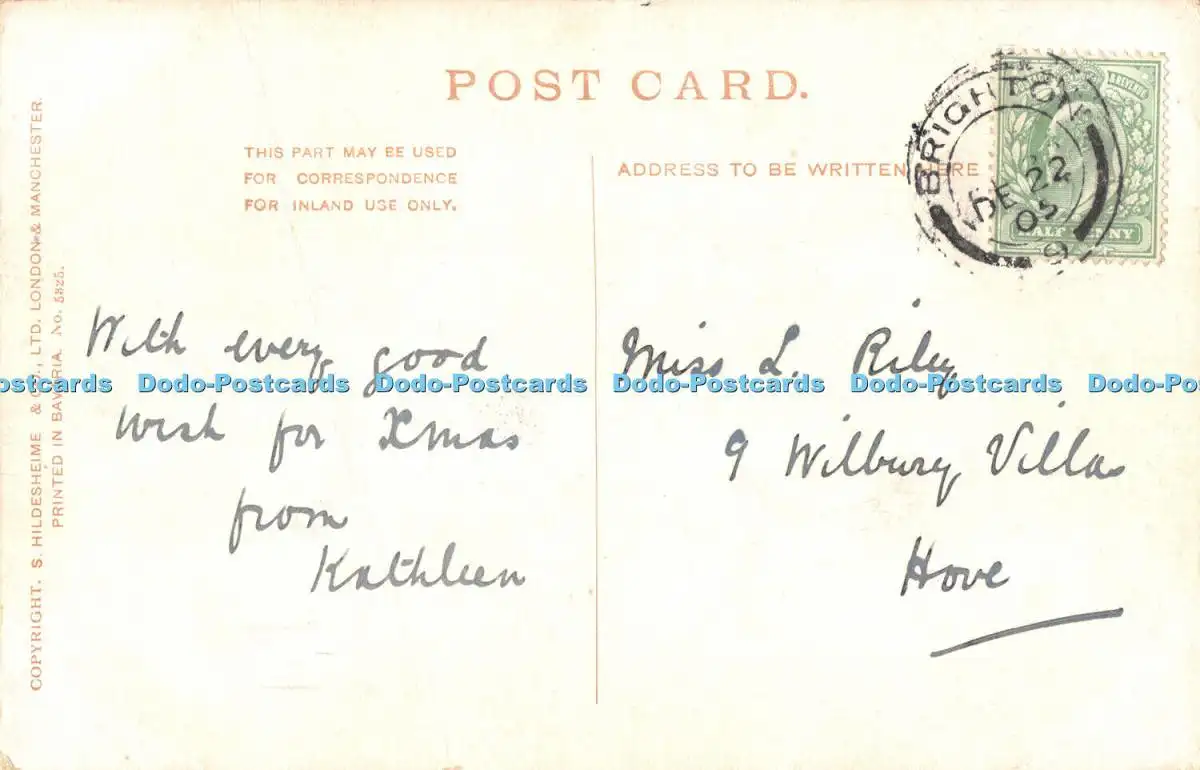 POST CARD.
THIS PART MAY BE USED
FOR CORRESPONDENCE
FOR INLAND USE ONLY.
ADDRESS TO BE WRITTEN HERE
BRIGHTON
DE 22
05
9
& REVENUE
HALF PENNY
COPYRIGHT. S. HILDESHEIME & CO., LTD. LONDON & MANCHESTER.
PRINTED IN BAVARIA. No. 5325.
With every good
wish for Xmas
from
Kathleen
Miss L. Riley
9 Wilbury Villas
Hove
Dodo-Postcards Dodo-Postcards Dodo-Postcards Dodo-Postcards Dodo-Postcards Dodo-Postcards